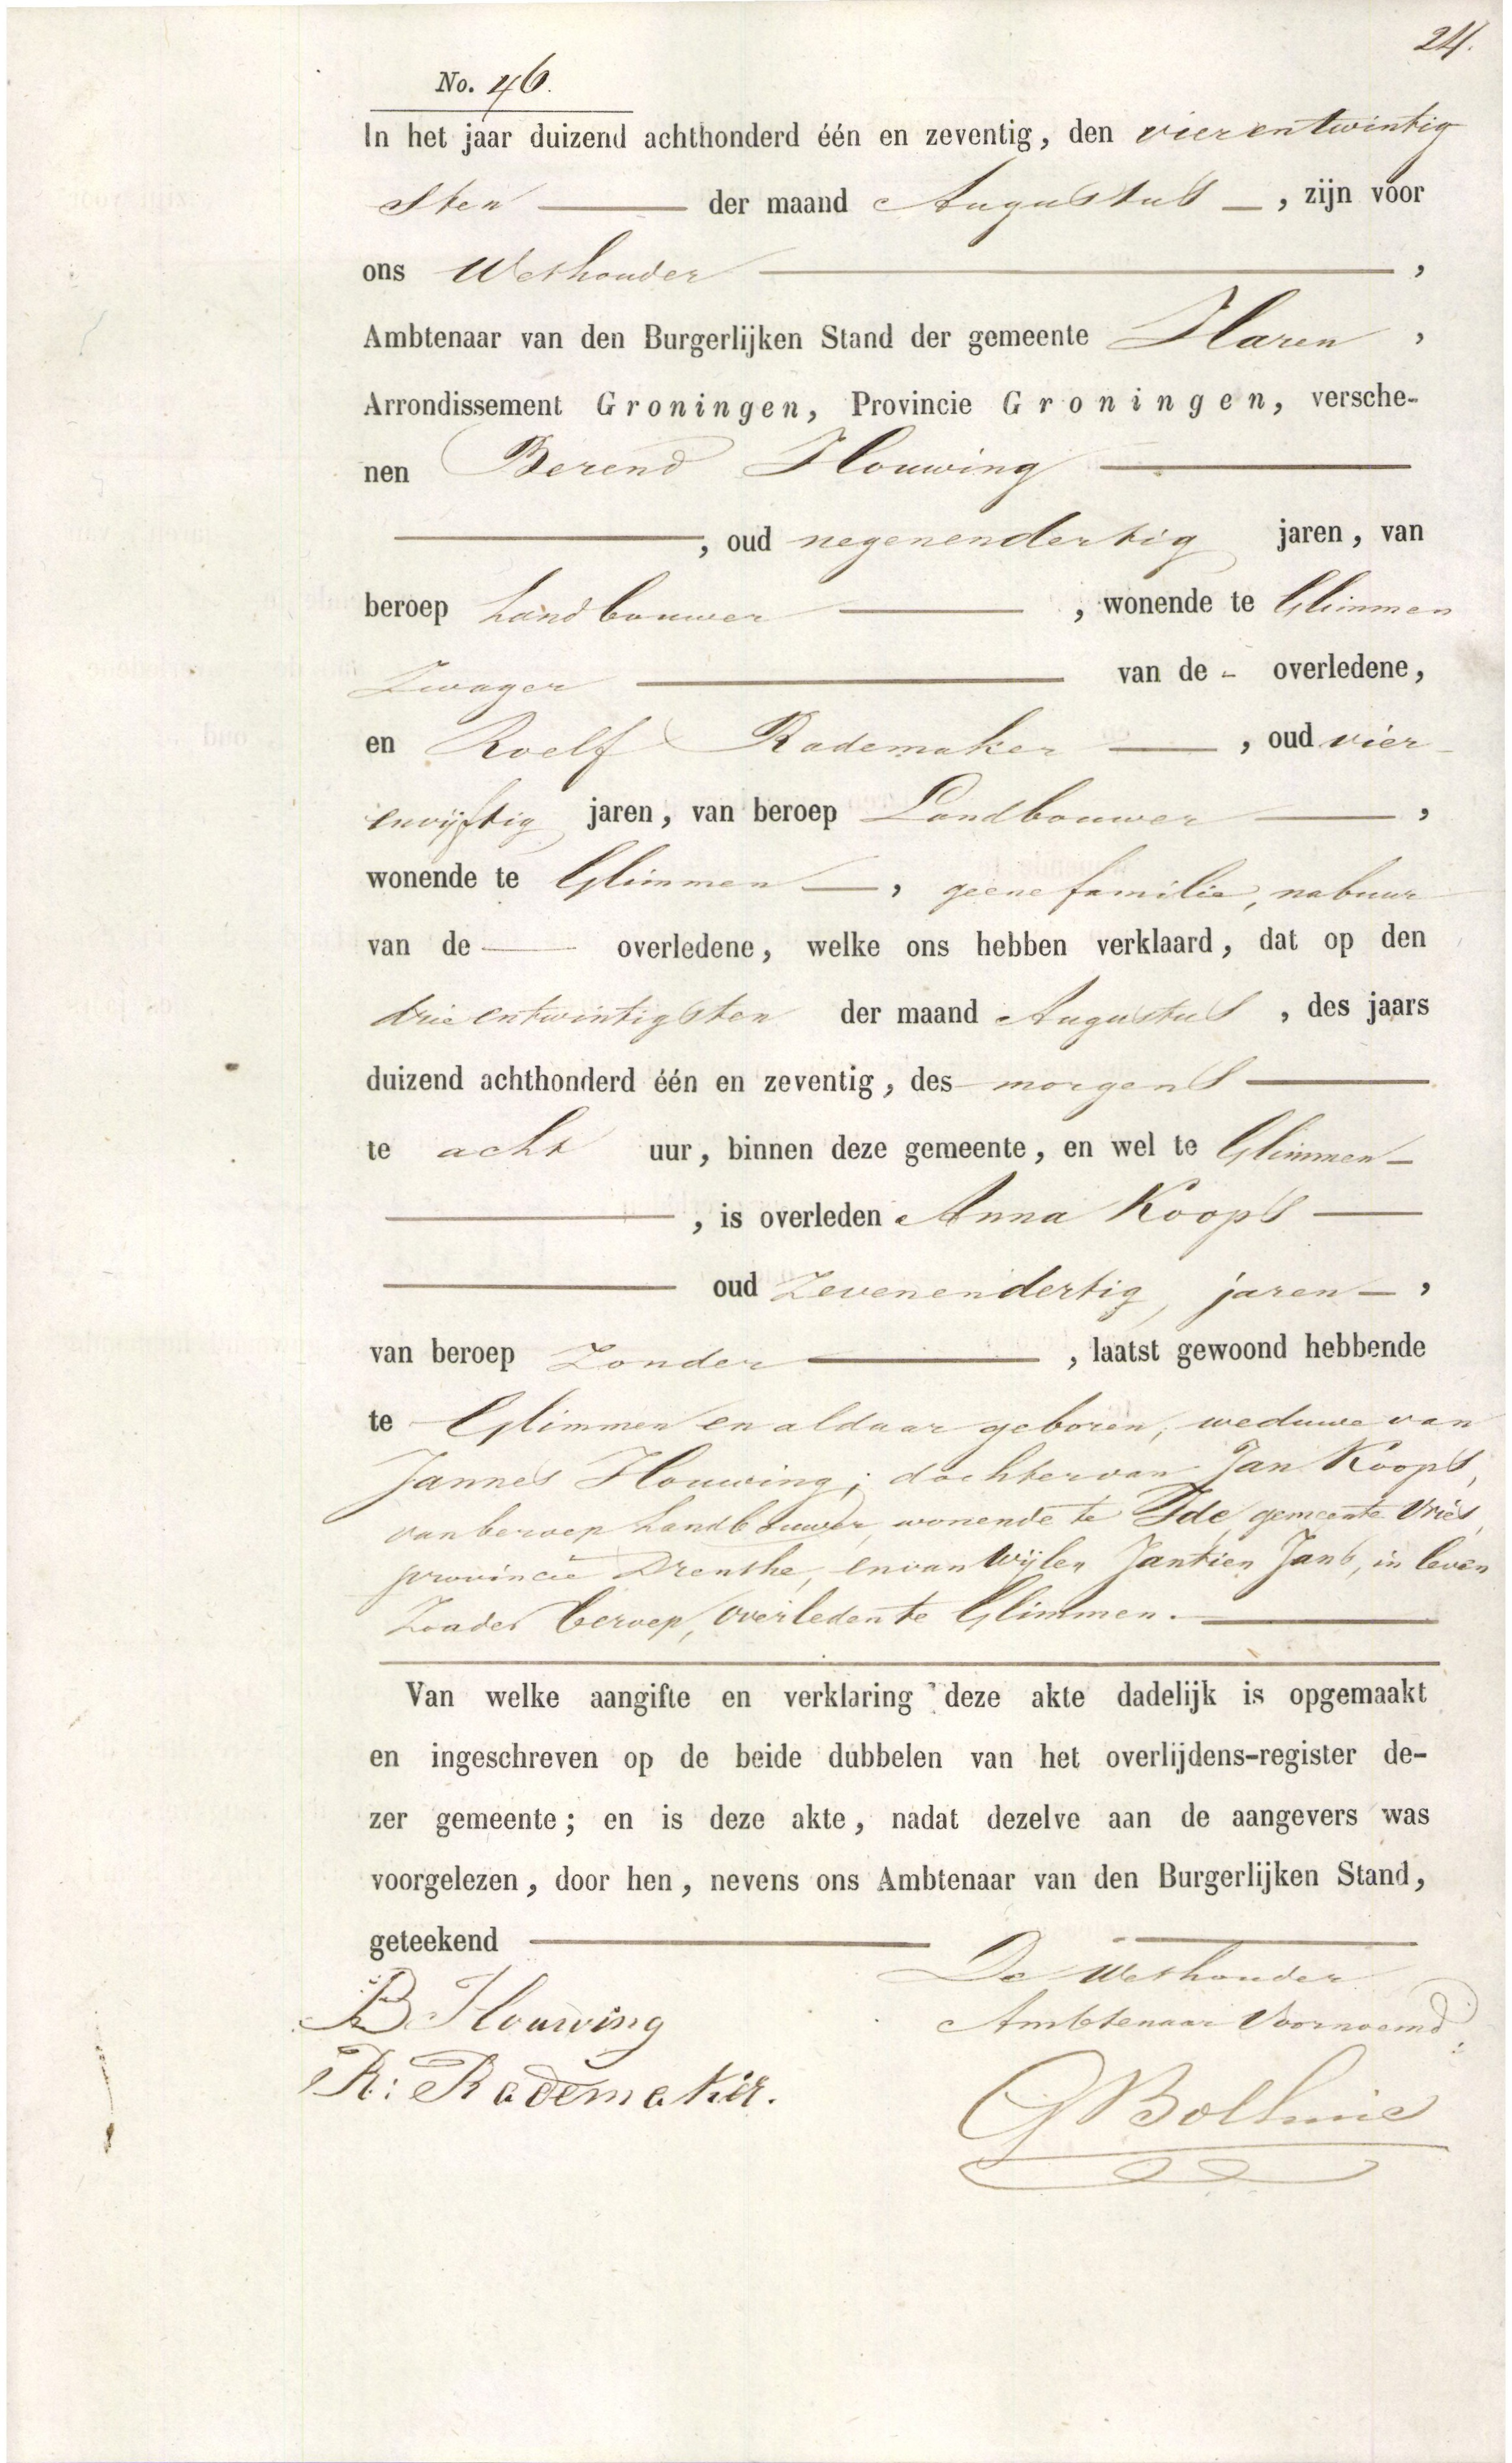 24.
No. 46.
In het jaar duizend achthonderd één en zeventig, den vierentwintig
sten der maand Augustus, zijn voor
ons Wethouder,
Ambtenaar van den Burgerlijken Stand der gemeente Haren,
Arrondissement Groningen, Provincie Groningen, versche-
nen Berend Houwing
, oud negenendertig jaren, van
beroep Landbouwer, wonende te Glimmen
Zwager van de overledene,
en Roelf Rademaker, oud vier
envijftig jaren, van beroep Landbouwer,
wonende te Glimmen, geene familie, nabuur
van de overledene, welke ons hebben verklaard, dat op den
drieentwintigsten der maand Augustus, des jaars
duizend achthonderd één en zeventig, des morgens
te acht uur, binnen deze gemeente, en wel te Glimmen
, is overleden Anna Koops
oud Zevenendertig jaren,
van beroep Zonder, laatst gewoond hebbende
te Glimmen en aldaar geboren, weduwe van
Jannes Houwing; dochter van Jan Koops,
van beroep Landbouwer, wonende te Ide, gemeente Vries,
provincie Drenthe, en van Wijlen Jantien Jans, in leven
Zonder beroep, overleden te Glimmen.
Van welke aangifte en verklaring deze akte dadelijk is opgemaakt
en ingeschreven op de beide dubbelen van het overlijdens-register de-
zer gemeente; en is deze akte, nadat dezelve aan de aangevers was
voorgelezen, door hen, nevens ons Ambtenaar van den Burgerlijken Stand,
geteekend
De Wethouder
Ambtenaar Voornoemd
B Houwing
R: Rademaker.